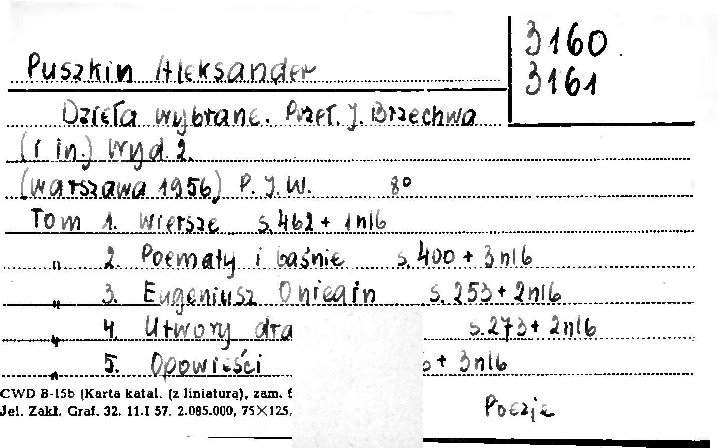 3160
3161
Puszkin Aleksander
Dzieła wybrane. Przeł. J. Brzechwa
(i in.) Wyd 2.
(Warszawa 1956) P. I. W. 8°
Tom 1. Wiersze s. 462 + 1nlb
" 2. Poematy i baśnie s. 400 + 3nlb
" 3. Eugeniusz Oniegin s. 253 + 2nlb
" 4. Utwory s. 273 + 2nlb
" 5. Opowieści + 3nlb
CWD B-15b (Karta katal. (z liniaturą), zam.
Jel. Zakł. Graf. 32. 11.I 57. 2.085.000, 75×125,
Poezje